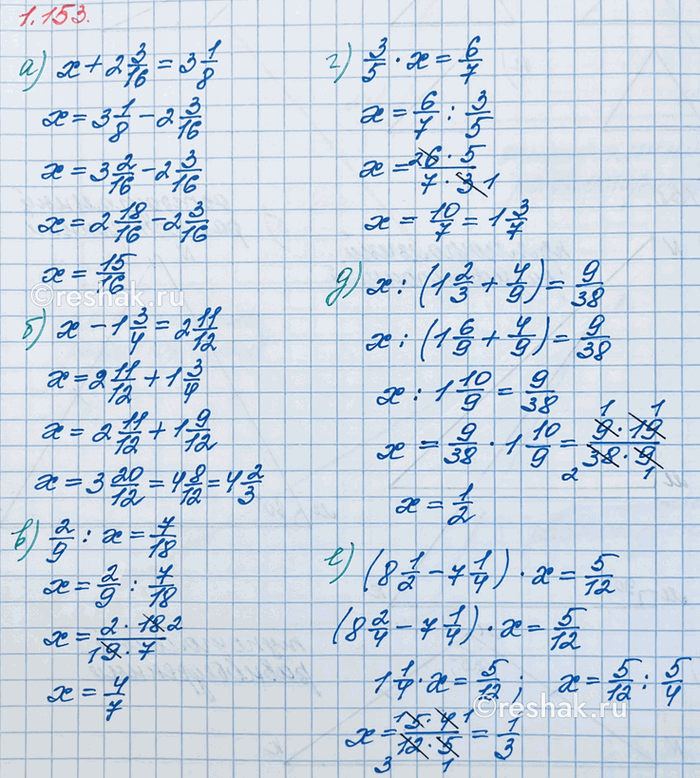 1.153.
а) x + 2 3/16 = 3 1/8
x = 3 1/8 - 2 3/16
x = 3 2/16 - 2 3/16
x = 2 18/16 - 2 3/16
x = 15/16
б) x - 1 3/4 = 2 11/12
x = 2 11/12 + 1 3/4
x = 2 11/12 + 1 9/12
x = 3 20/12 = 4 8/12 = 4 2/3
в) 2/9 : x = 7/18
x = 2/9 : 7/18
x = 2 · 18 2 / 1 9 · 7
x = 4/7
г) 3/5 · x = 6/7
x = 6/7 : 3/5
x = 2 6 · 5 / 7 · 3 1
x = 10/7 = 1 3/7
д) x : (1 2/3 + 4/9) = 9/38
x : (1 6/9 + 4/9) = 9/38
x : 1 10/9 = 9/38
x = 9/38 · 1 10/9 = 1 9 · 19 1 / 2 38 · 9 1
x = 1/2
е) (8 1/2 - 7 1/4) · x = 5/12
(8 2/4 - 7 1/4) · x = 5/12
1 1/4 · x = 5/12 ; x = 5/12 : 5/4
x = 1 5 · 4 1 / 3 12 · 5 1 = 1/3
©reshak.ru
©reshak.ru